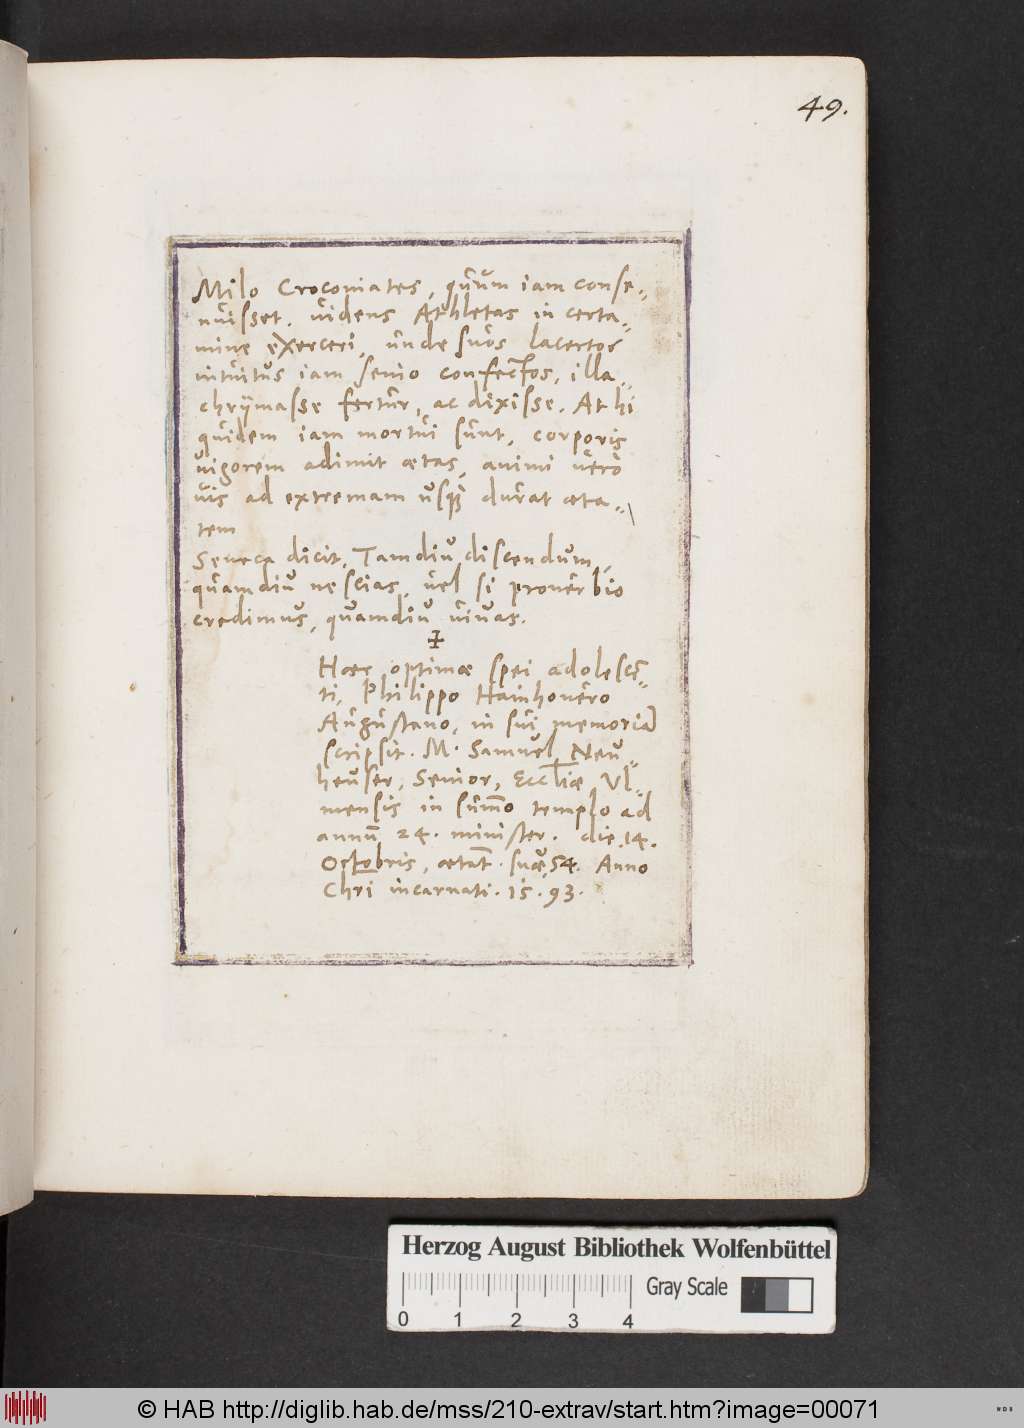 49.
Milo Crocomates, quum iam conse„
nuisset. uidens Athletas in certa„
mine exerceri, unde suos lacertos
intuitus iam senio confectos, illa„
chrÿmasse fertur, ac dixisse. At hi
quidem iam mortui sunt, corporis
uigorem adimit ætas, animi uero
uis ad extremam usq; durat æta„
tem
Seneca dicit. Tamdiu discendum,
quamdiu nescias, uel si prouerbio
credimus, quamdiu uiuas.
Haec optimæ spei adolescē„
ti, Philippo Hainhouero
Augustano, in sui memoriã
scripsit. M. Samuel Neu„
heuser, Senior, Eccliæ Ul„
mensis in sum̄o templo ad
annū 24. minister. die .14.
Octobris, ætat̄. suæ, 54. Anno
Chri incarnati. 15.93.
Herzog August Bibliothek Wolfenbüttel
Gray Scale
0 1 2 3 4
© HAB http://diglib.hab.de/mss/210-extrav/start.htm?image=00071